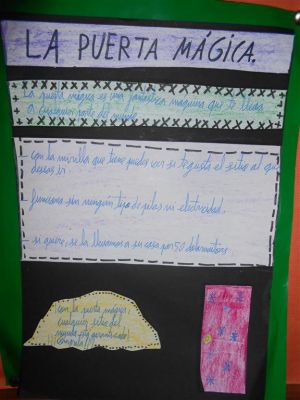 LA PUERTA MÁGICA.
La puerta mágica es una fantástica máquina que te lleva
a cualquier parte del mundo
- con la mirilla que tiene puedes ver si te gusta el sitio al que
deseas ir
- funciona sin ningún tipo de pilas ni electricidad.
- si quiere, se la llevamos a su casa por 50
con la puerta mágica,
cualquier sitio del
mundo